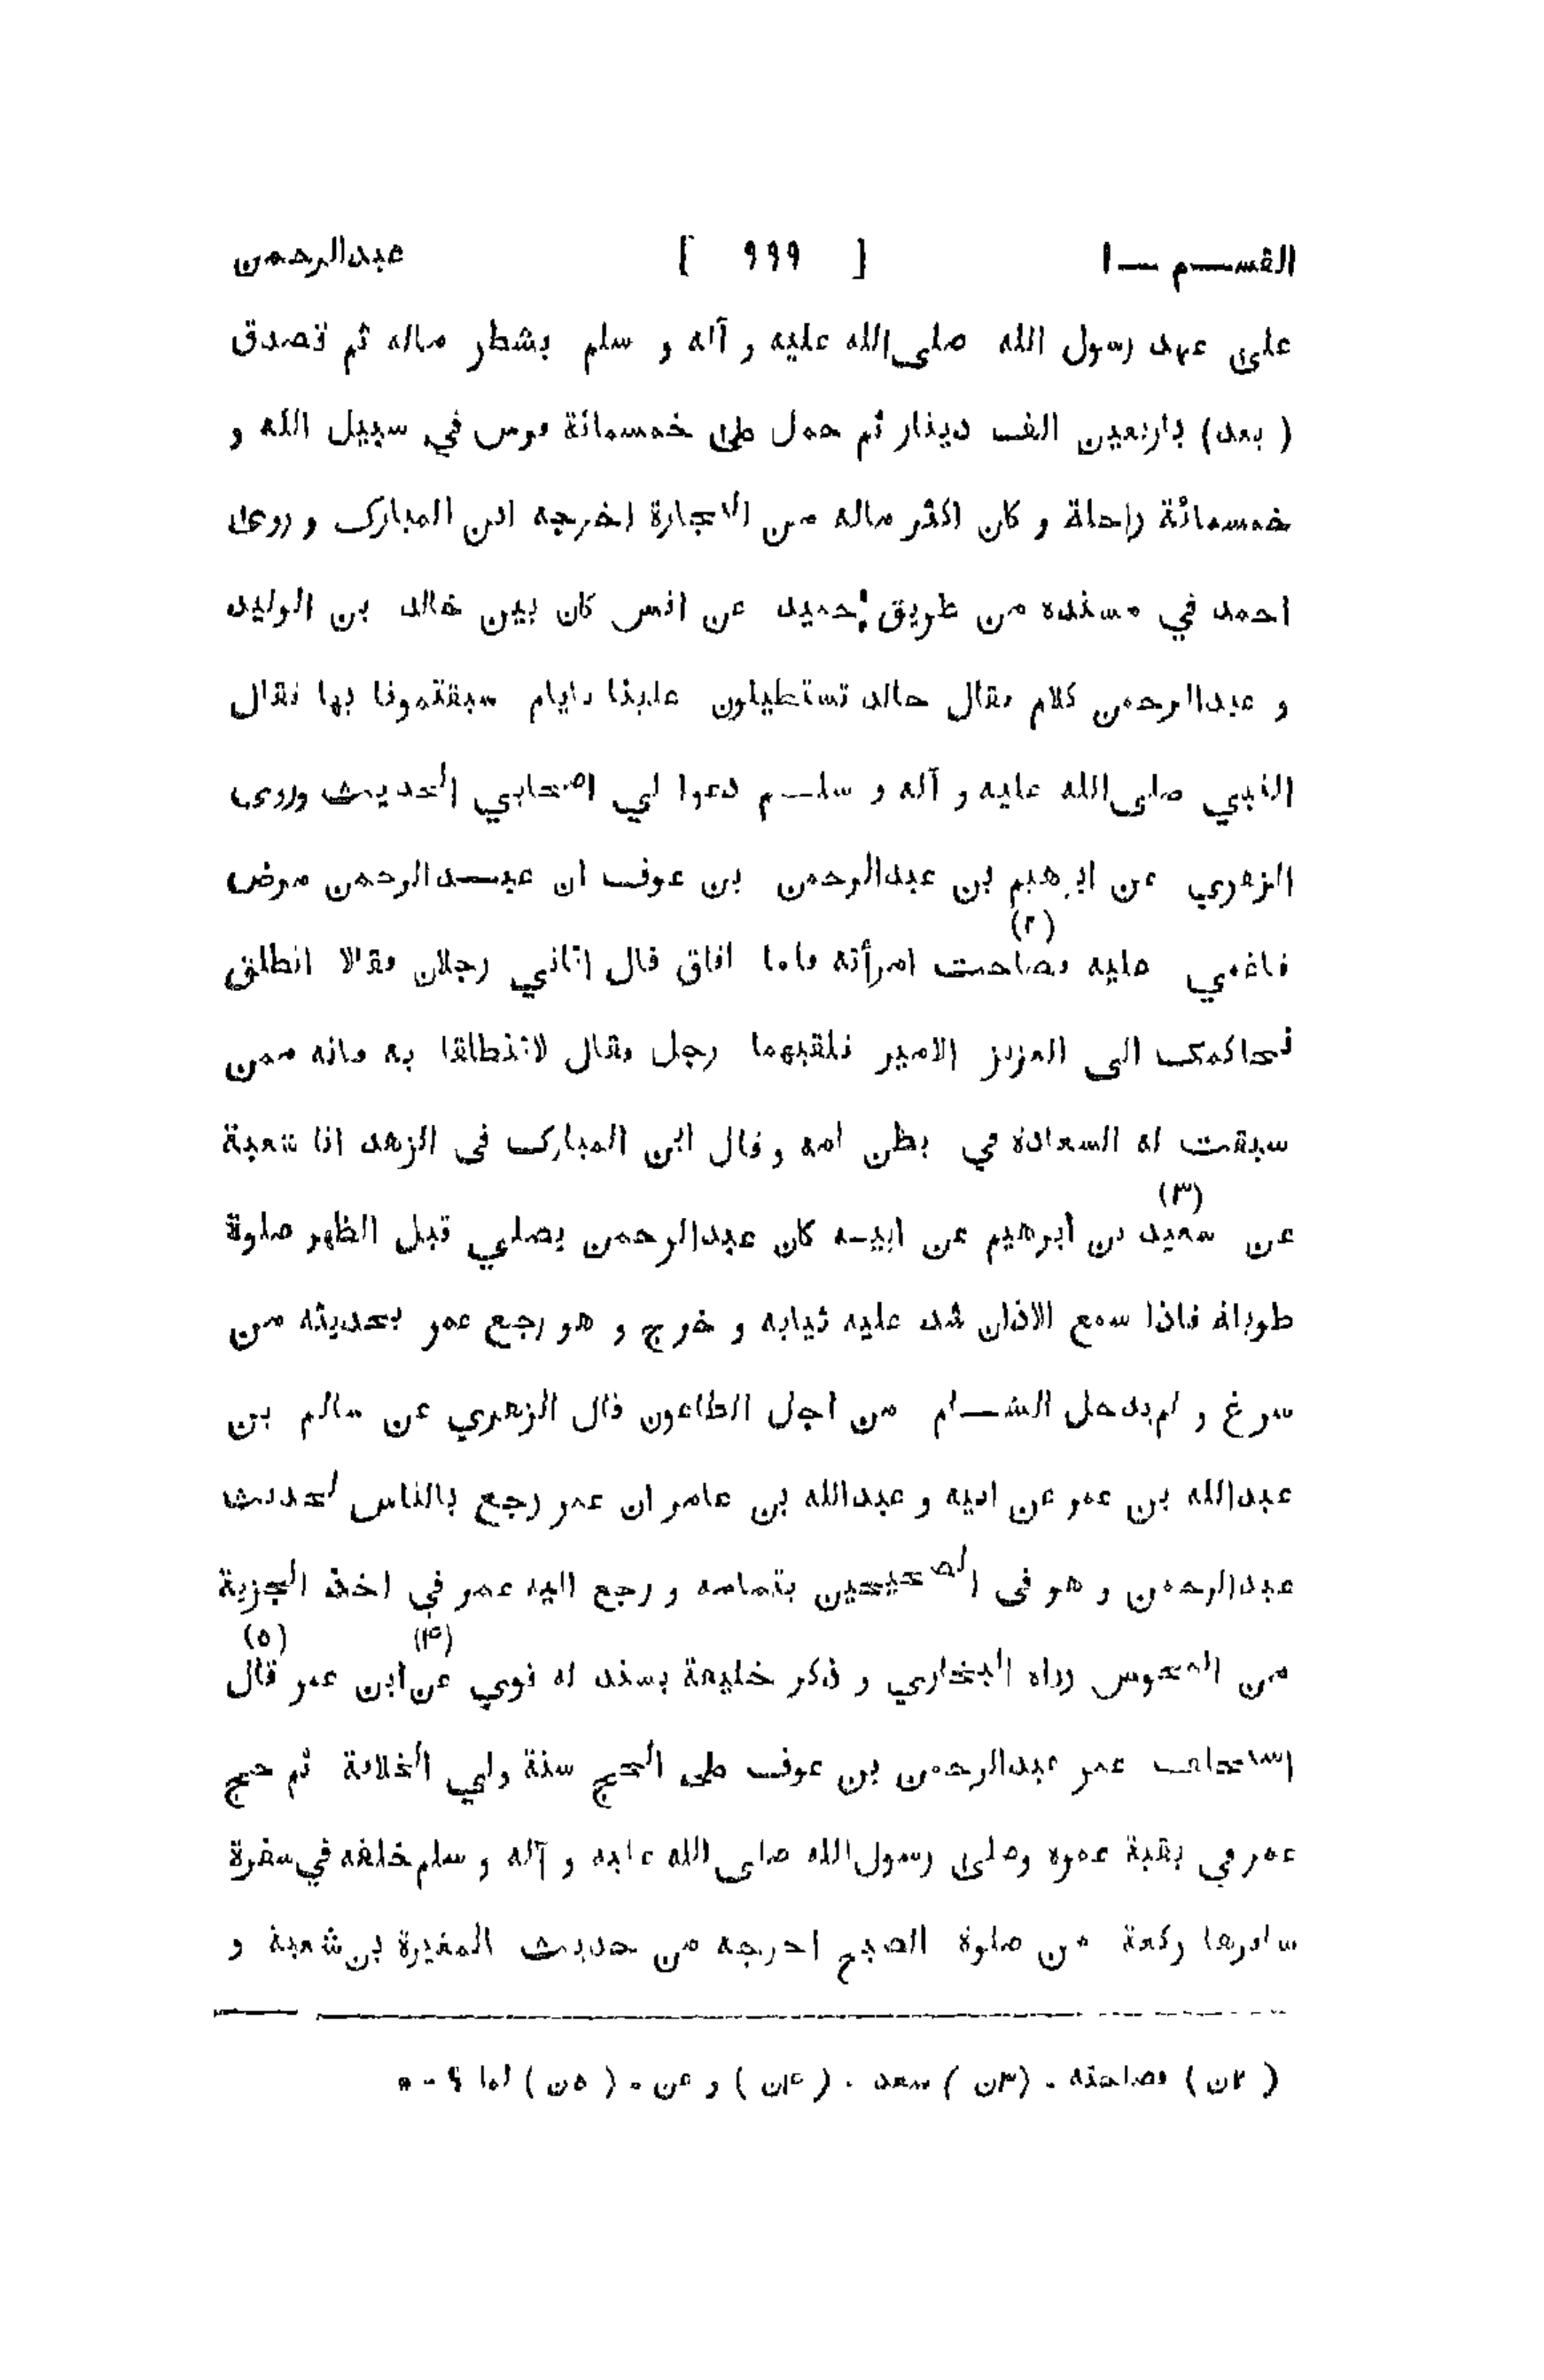 القســـم — ١ [ ٩٩٩ ] عبدالرحمن
على عهد رسول الله صلى الله عليه و آله و سلم بشطر ماله ثم تصدق
( بعد ) باربعين الف دينار ثم حمل على خمسمائة فرس في سبيل الله و
خمسمائة راحلة و كان اكثر ماله من التجارة اخرجه ابن المبارك و روى
احمد في مسنده من طريق حميد عن انس كان بين خالد بن الوليد
و عبدالرحمن كلام فقال خالد تستطيلون علينا بايام سبقتمونا بها فقال
النبي صلى الله عليه و آله و سلـــم دعوا لي اصحابي الحديث وروى
الزهري عن ابرهيم بن عبدالرحمن بن عوف ان عبـــدالرحمن مرض
فاغمي عليه فصاحت (٢) امرأته فلما افاق قال اتاني رجلان فقالا انطلق
نحاكمك الى العزيز الامير فلقيهما رجل فقال لاتنطلقا به فانه ممن
سبقت له السعادة في بطن امه و قال ابن المبارك فى الزهد انا شعبة
عن سعيد (٣) بن ابرهيم عن ابيـــه كان عبدالرحمن يصلي قبل الظهر صلوة
طويلة فاذا سمع الاذان شد عليه ثيابه و خرج و هو رجع عمر بحديثه من
سرغ و لم يدخل الشـــام من اجل الطاعون قال الزهري عن سالم بن
عبدالله بن عمر عن ابيه و عبدالله بن عامر ان عمر رجع بالناس لحديث
عبدالرحمن و هو فى الصحيحين بتمامه و رجع اليه عمر في اخذ الجزية
من المجوس رواه البخاري و ذكر خليفة بسند له قوي عن (٤) ابن عمر قال (٥)
استخلف عمر عبدالرحمن بن عوف على الحج سنة ولي الخلافة ثم حج
عمر في بقية عمره وصلى رسول الله صلى الله عليه و آله و سلم خلفه في سفرة
سافرها ركعة من صلوة الصبح اخرجه من حديث المغيرة بن شعبة و
( ٢ن ) فصاحته - ( ٣ن ) سعد - ( ٤ن ) و عن - ( ٥ن ) لما ؟ - *